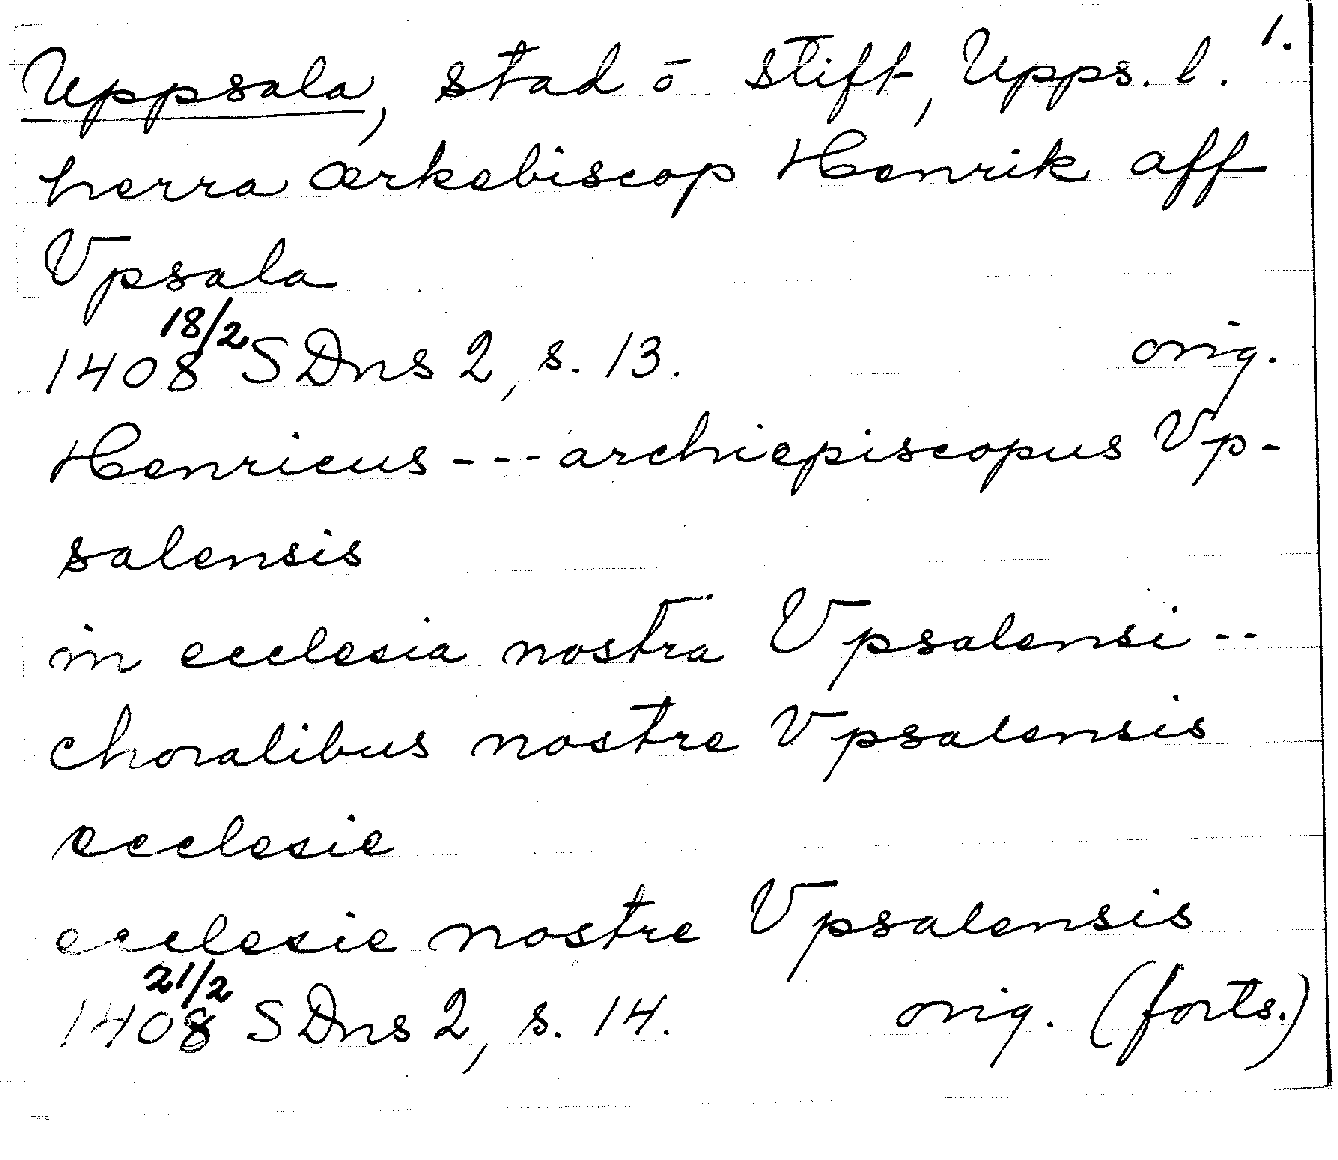 Uppsala, stad o stift, Upps. l. 1.
herra ærkebiscop Henrik aff
Vpsala
1408 18/2 SDns 2, s. 13. orig.
Henricus --- archiepiscopus Vp-
salensis
in ecclesia nostra Vpsalensi --
choralibus nostre Vpsalensis
ecclesie
ecclesie nostre Vpsalensis
1408 21/2 SDns 2, s. 14. orig. (forts.)